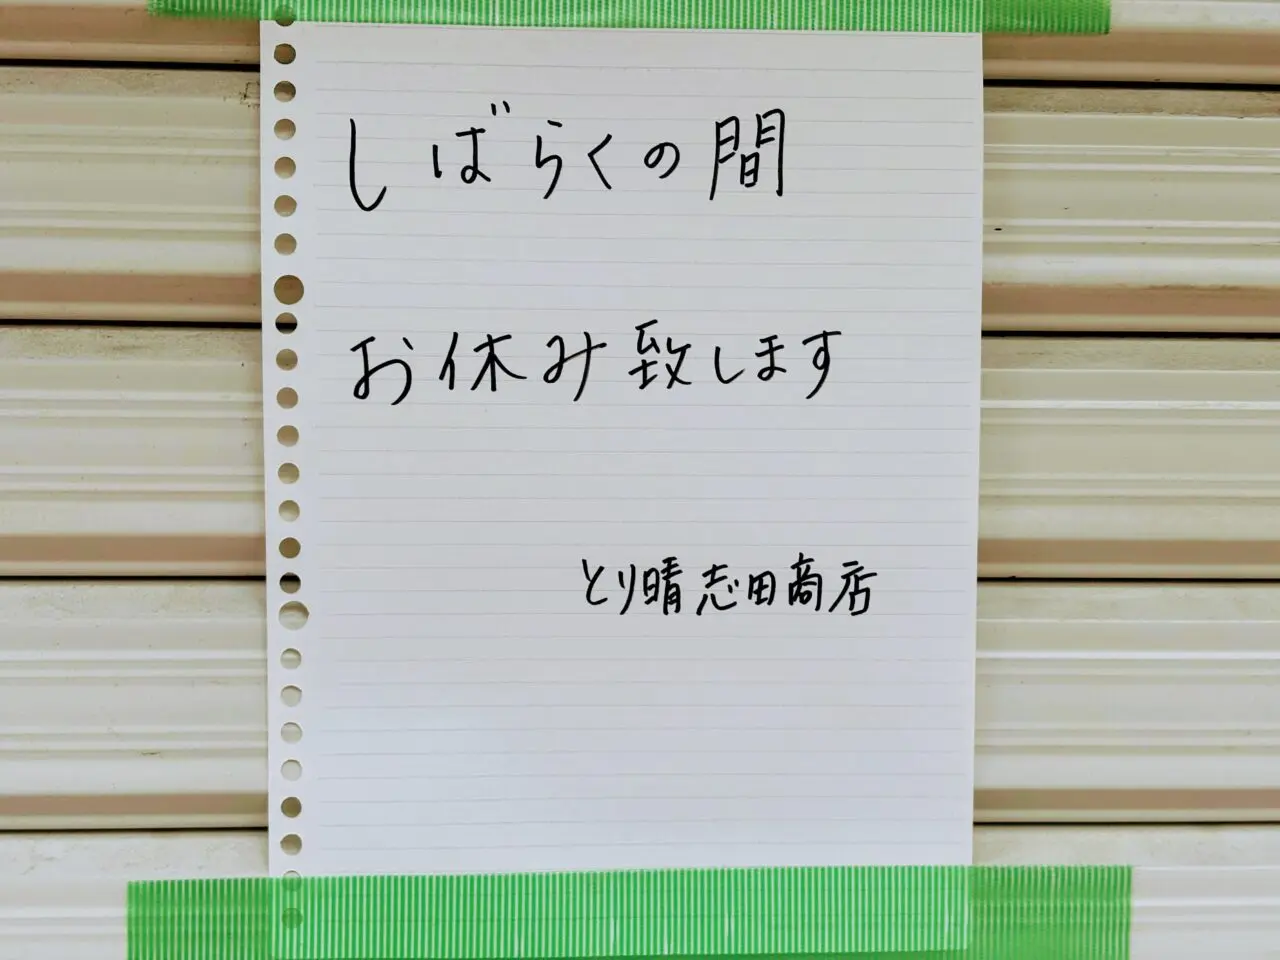 しばらくの間
お休み致します
とり晴志田商店